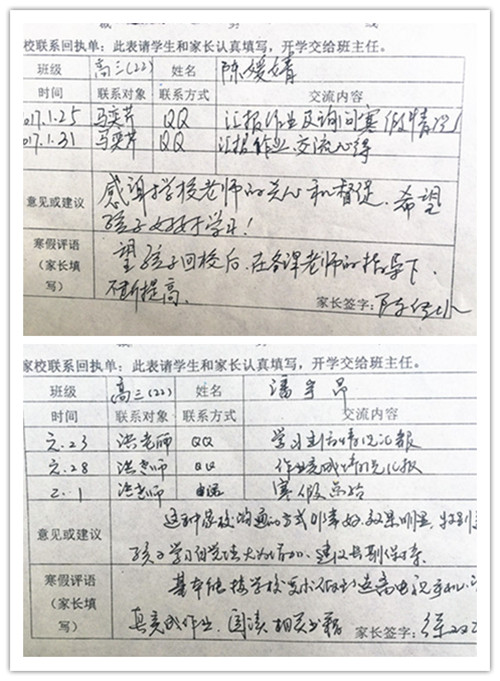 校联系回执单：此表请学生和家长认真填写，开学交给班主任。
班级 高三(22) 姓名 陈媛婧
时间 联系对象 联系方式 交流内容
017.1.25 马奕芹 QQ 汇报作业及询问寒假情况
017.1.31 马奕芹 QQ 汇报作业,交流心得
意见或建议 感谢学校老师的关心和督促，希望
孩子好好学习！
寒假评语（家长填写） 望孩子回校后，在各课老师的指导下
不断提高。
家长签字：陈
家校联系回执单：此表请学生和家长认真填写，开学交给班主任。
班级 高三(22) 姓名 潘宇昂
时间 联系对象 联系方式 交流内容
元.23 洪老师 QQ 学习主要情况汇报
元.28 洪老师 QQ 作业完成情况汇报
2.1 洪老师 电话 寒假总结
意见或建议 这种家校沟通的方式非常好,效果明显,特别
孩子学习自觉性大为增加，建议长期保持。
寒假评语（家长填写） 基本能按学校要求做到远离电视手机，
真完成作业，阅读相关书籍
家长签字：徐